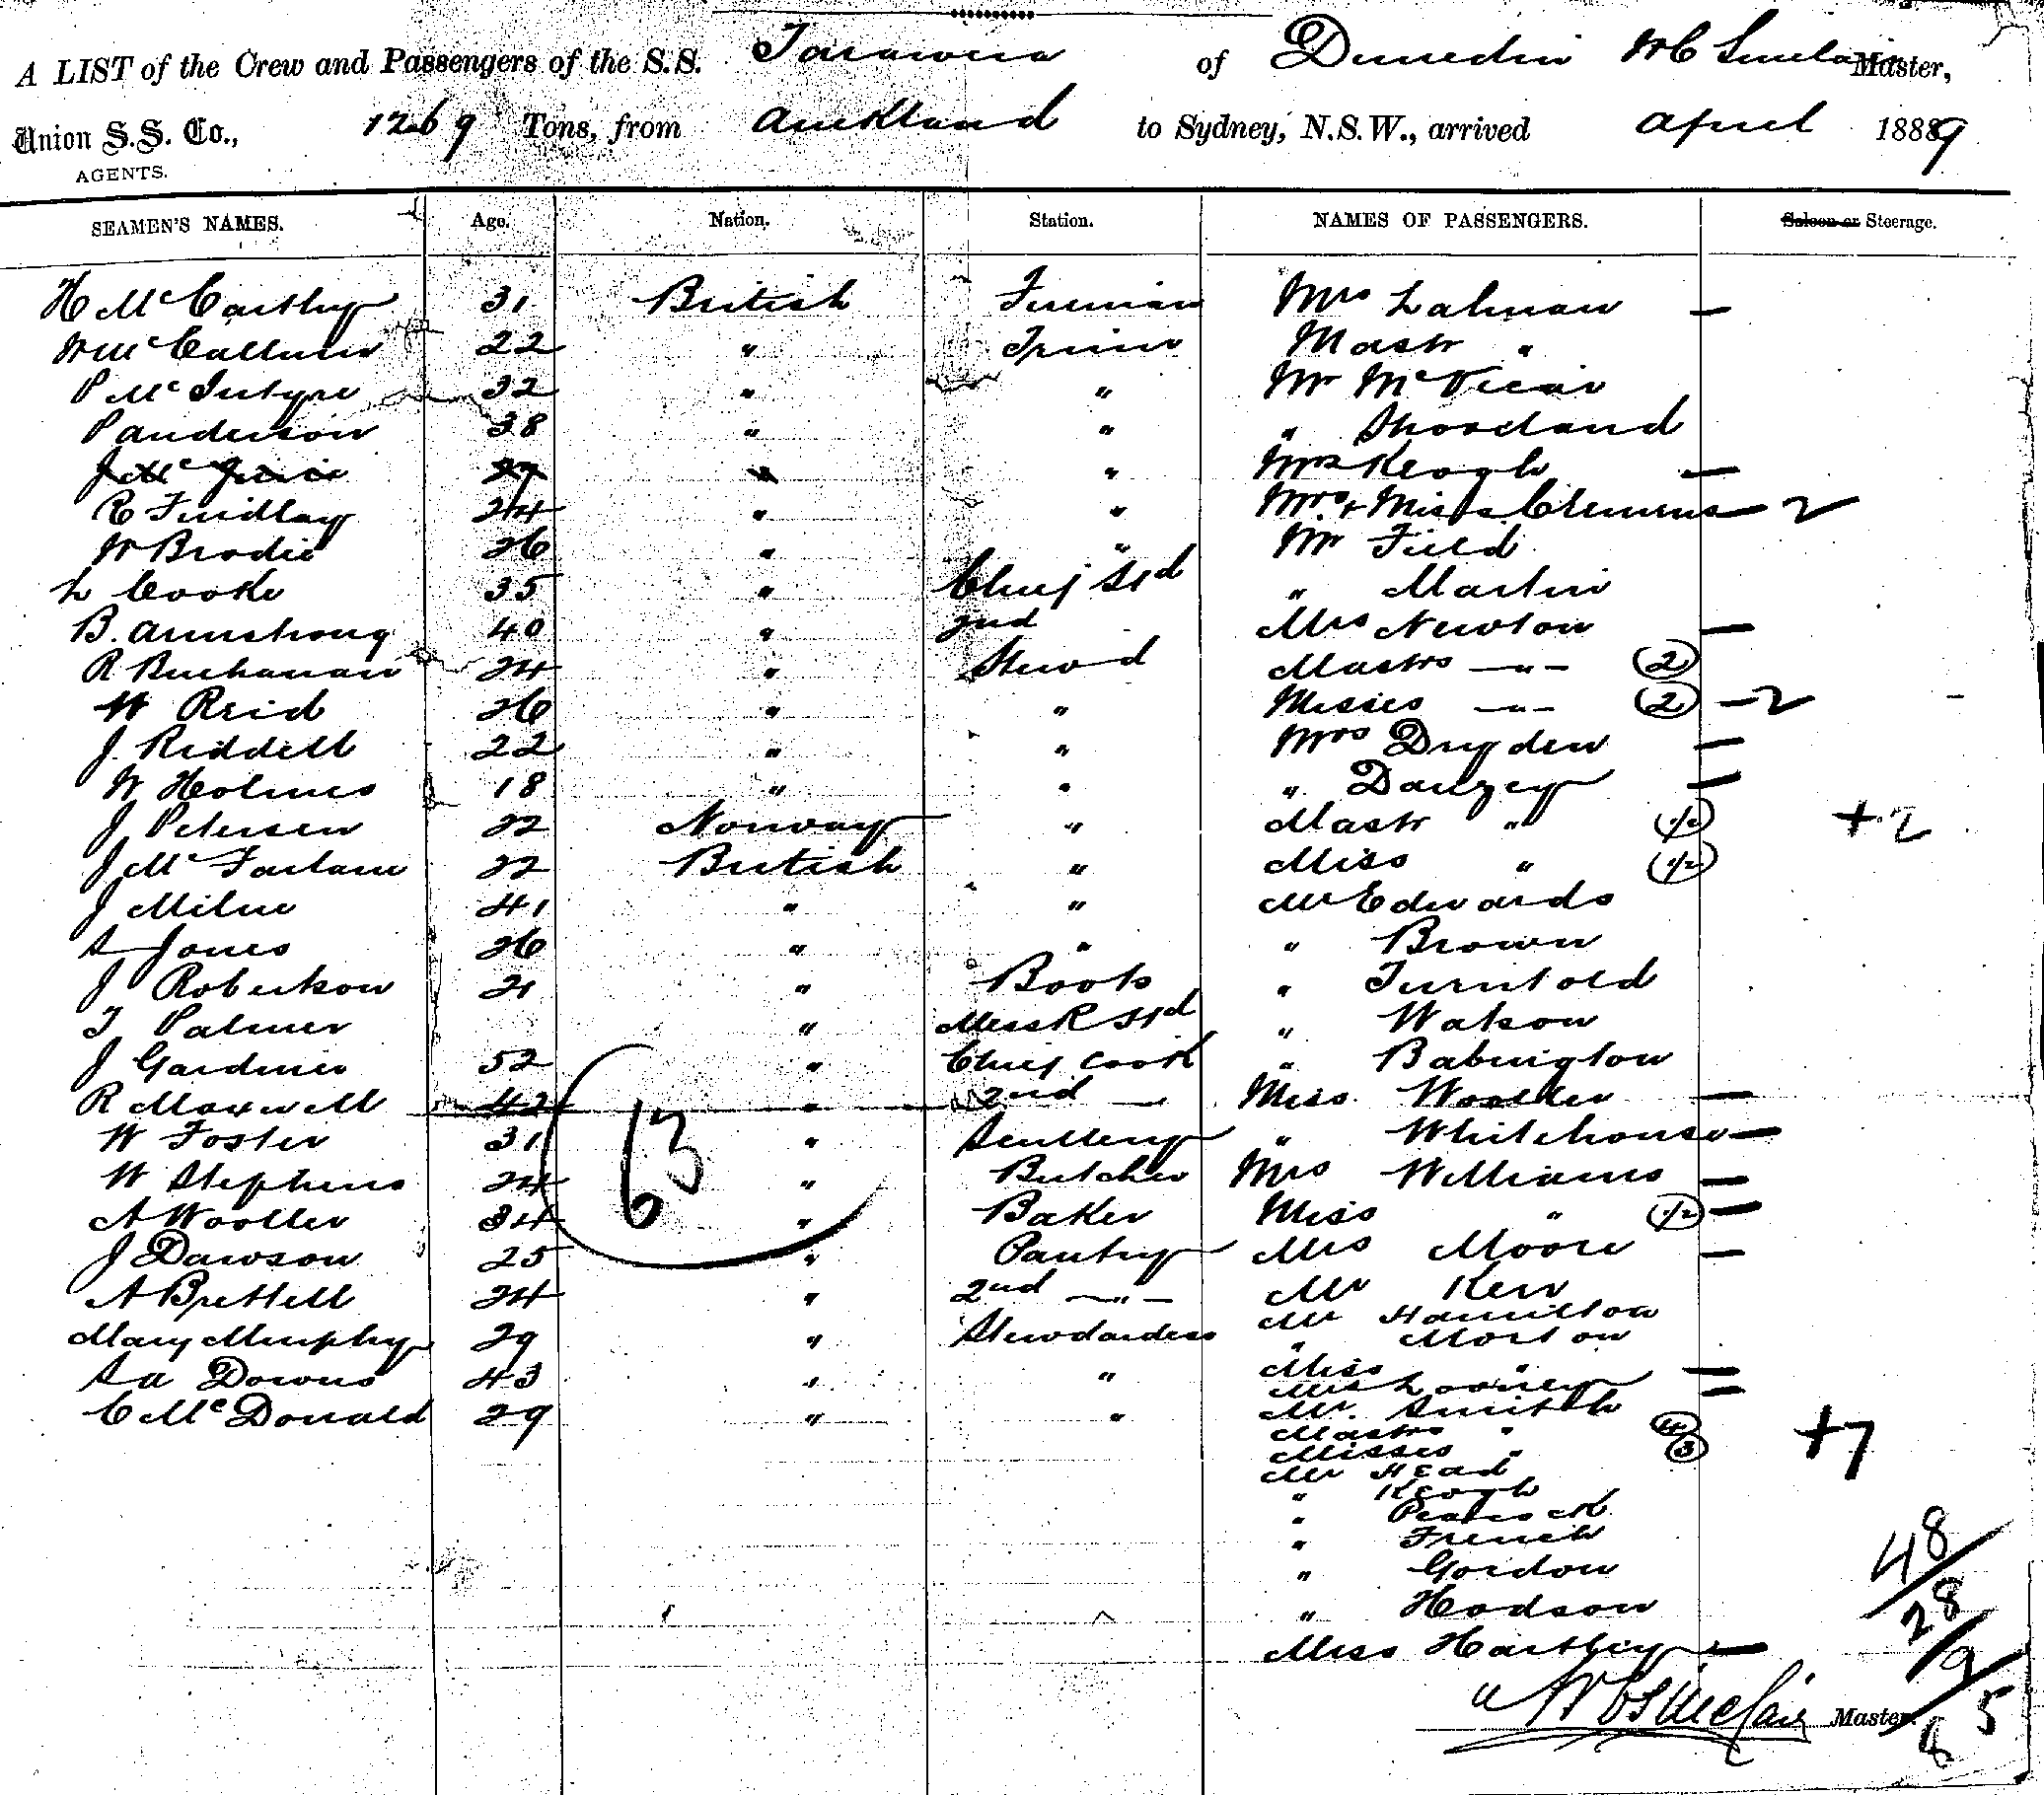 A LIST of the Crew and Passengers of the S.S. Tarawera of Dunedin W C Sinclair Master,
Union S.S. Co., 1269 Tons, from Auckland to Sydney, N.S.W., arrived April 1889
AGENTS.
SEAMEN'S NAMES. Age. Nation. Station. NAMES OF PASSENGERS. Saloon or Steerage.
H McCarthy 31 British Fireman Mrs Lalman —
W McCallum 22 " Trimr Mastr "
P McIntyre 32 " " Mr McVicar
P Anderson 38 " " " Shoreland
J Mc 27 " " Mrs Keogh —
R Findlay 24 " " Mrs + Miss Clemens — 2
W Brodie 26 " " Mr Field
L Cooke 35 " Chief Std " Martin
B. Armstrong 40 " 2nd Mrs Newton —
R Buchanan 24 " Stewd Mastrs — " — (2)
W Reid 26 " " Misses — " — (2) — 2
J Riddell 22 " " Mrs Dryden —
W Holmes 18 " " " Danzey —
J Petersen 22 Norway " Mastr " (1/2) + 2
J McFarlane 22 British " Miss " (1/2)
J Milne 41 " " Mr Edwards
S Jones 26 " " " Brown
J Robertson 21 " Boots " Turnbold
T Palmer " Mess R Std " Watson
J Gardiner 52 " Chief Cook " Babington
R Maxwell 42 " 2nd — Miss Wooller —
W Foster 31 63 " Scullery " Whitehouse —
W Stephens 24 " Butcher Mrs Williams —
A Wooller 34 " Baker Miss " (1/2) —
J Dawson 25 " Pantry Mrs Moore —
A Brettell 24 " 2nd — " — Mr Kerr
Mr Hamilton
Mary Murphy 29 " Stewdardess " Morton
S A Downs 43 " " Miss " —
Mrs Looney —
C McDonald 29 " " Mr. Smith
Mastrs " (4) + 7
Misses " (3)
Mr Head
" Keogh
" Peacock
" French
" Gordon 48
" Hodson 28
Miss Hartley — 9
W C Sinclair Master. 85